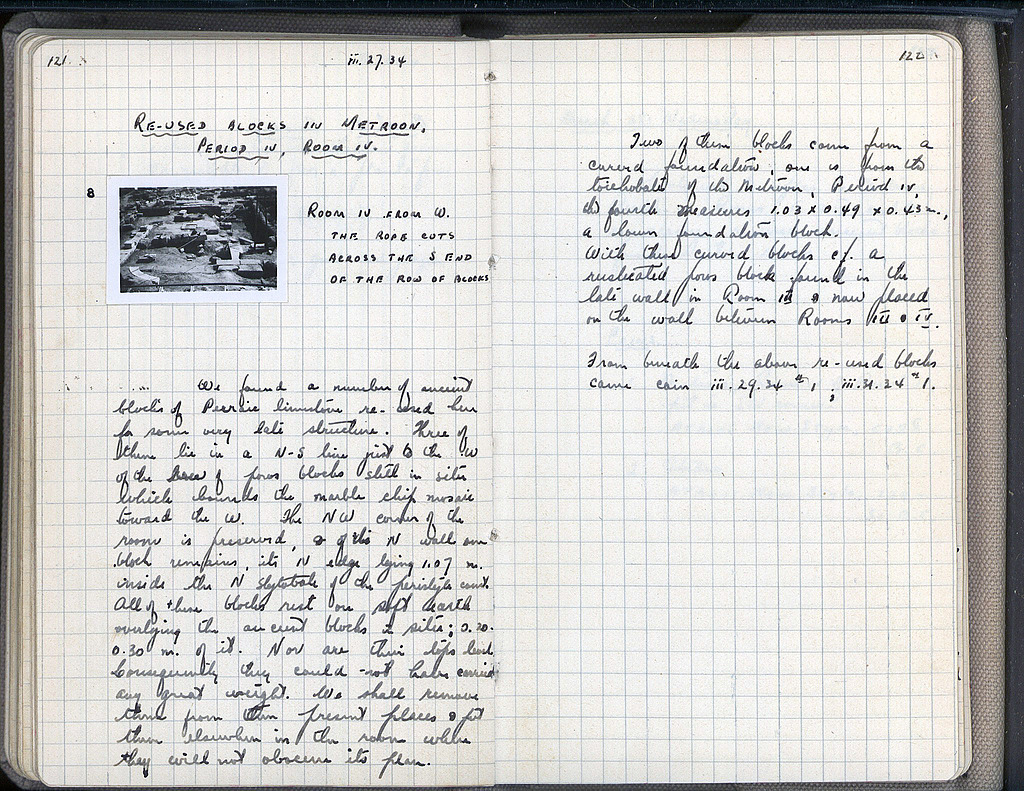 121
iii. 27. 34
RE-USED BLOCKS IN METROON,
PERIOD IV, ROOM IV.
8
ROOM IV FROM W.
THE ROPE CUTS
ACROSS THE S END
OF THE ROW OF BLOCKS
We found a number of ancient
blocks of Peiraic limestone re-used here
for some very late structure. Three of
them lie in a N-S line just to the W
of the line of poros blocks still in situ
which bounds the marble chip mosaic
toward the W. The NW corner of the
room is preserved, & of the N wall one
block remains, its N edge lying 1.07 m.
inside the N stylobate of the peristyle court.
All of these blocks rest on soft earth
overlying the ancient blocks in situ; 0.20-
0.30 m. of it. Nor are their tops level.
Consequently they could not have carried
any great weight. We shall remove
them from their present places & put
them elsewhere in the room where
they will not obscure its plan.
122
Two of these blocks come from a
curved foundation, one is from the
toichobate of the Metroon, Period IV,
the fourth measures 1.03 x 0.49 x 0.43 m.,
a lower foundation block.
With these curved blocks cf. a
rusticated poros block found in the
late wall in Room III & now placed
on the wall between Rooms III & IV.
From beneath the above re-used blocks
came coin iii.29.34 #1; iii.31.34 #1.